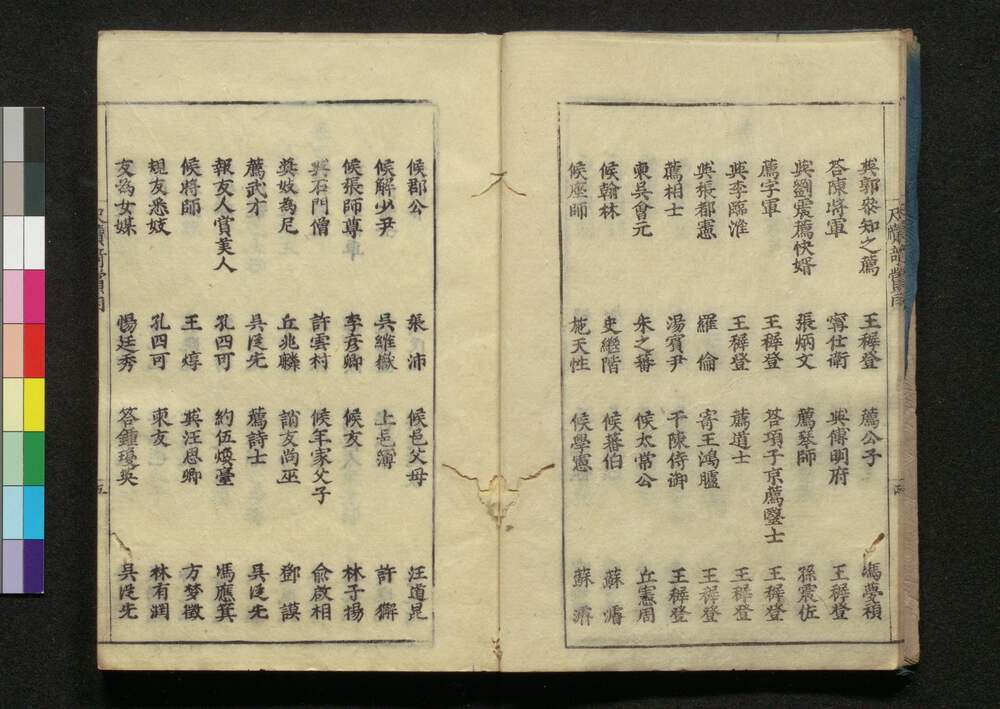 與郭叅知之薦 王穉登 薦公子 馮夢禎
答陳將軍 寗仕衛 與傅明府 王穉登
與劉震薦快婿 張炳文 薦琴師 孫震佐
薦字軍 王穉登 答項子京薦毉士 王穉登
與李臨淮 王穉登 薦道士 王穉登
與張都憲 羅倫 寄王鴻臚 王穉登
薦相士 湯賓尹 干陳侍御 王穉登
柬吳會元 朱之蕃 候太常公 丘憲周
候翰林 史繼階 候蕃伯 蘇濬
候座師 施天性 候學憲 蘇濬
尺牘
候郡公 張沛 候邑父母 汪道昆
候解少尹 吳維嶽 上邑簿 許獬
候張師尊車 李彥卿 候友人 林子揚
與石門僧 許雲村 候年家父子 俞啟相
奬妓為尼 丘兆麟 誚友尚巫 鄧謨
薦武才 吳從先 薦詩士 吳從先
報友人賞美人 孔四可 約伍煥臺 馮應箕
候將師 王焞 與汪恩卿 方夢徵
規友悉妓 孔四可 柬友 林有洞
友為女媒 惕廷秀 答鍾瓊英 吳從先
五